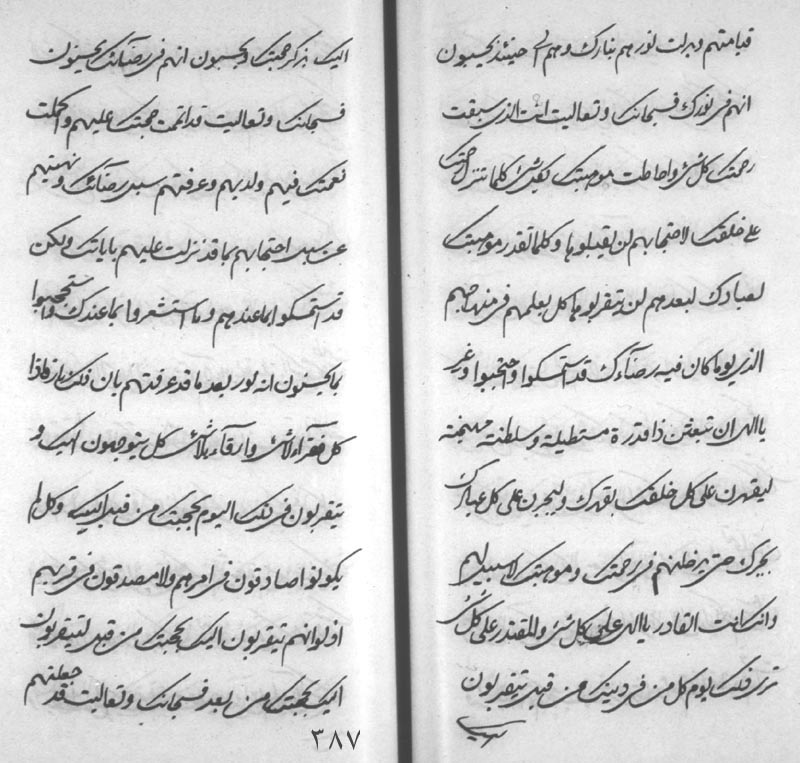 قيامتهم وبدلت نورهم بنارك وهم الى حينئذ يحسبون
انهم فى نورك فسبحانك وتعاليت انت الذى سبقت
رحمتك كل شئ واحاطت موهبتك كل شئ كلما تنزل رحمتك
على خلقك لاحتجابهم لن يقبلوها وكلما تقدر موهبتك
لعبادك لبعدهم لن يتقربوها كل يعلمهم فى منهاجهم
الذى يوما كان فيه رضاءك قد استمسكوا واحتجبوا وغير
يا الهى ان تبعثن ذا قدرة مستطيلة وسلطنة مهيمنة
ليقهرن على كل خلقك بقهرك وليجبرن على كل عبادك
بجبرك حتى يدخلنهم فى رحمتك وموهبتك لا سبيل لهم
وانك انت القادر يا الهى على كل شئ والمقتدر على كل شئ
ترى فلك يوم كل من فى دينك من قبل يتقربون
اليك بذكر حجتك ويحسبون انهم فى رضائك يحسنون
فسبحانك وتعاليت قد اتممت حجتك عليهم واكملت
نعمتك فيهم ولديهم وعرفتهم سبل رضائك ونهيتهم
عن سبل احتجابهم بما قد نزلت عليهم باياتك ولكن
قد استمسكوا بما عندهم وما استشعروا بما عندك واستحجبوا
بما يحسنون انه لور بعد ما قد عرفتهم بان فلك نار فاذا
كل فقرآء لاشئ وارقآء بلاشئ كل يتوجهون اليك و
يتقربون فى تلك اليوم بحجتك من قبل اليك وكل لم
يكونوا صادقون فى امرهم ولا مصدقون فى قربهم
اذ لو انهم يتقربون اليك بحجتك من قبل ليتقربون
اليك بحجتك من بعد فسبحانك وتعاليت قد جعلتهم
٣٨٧